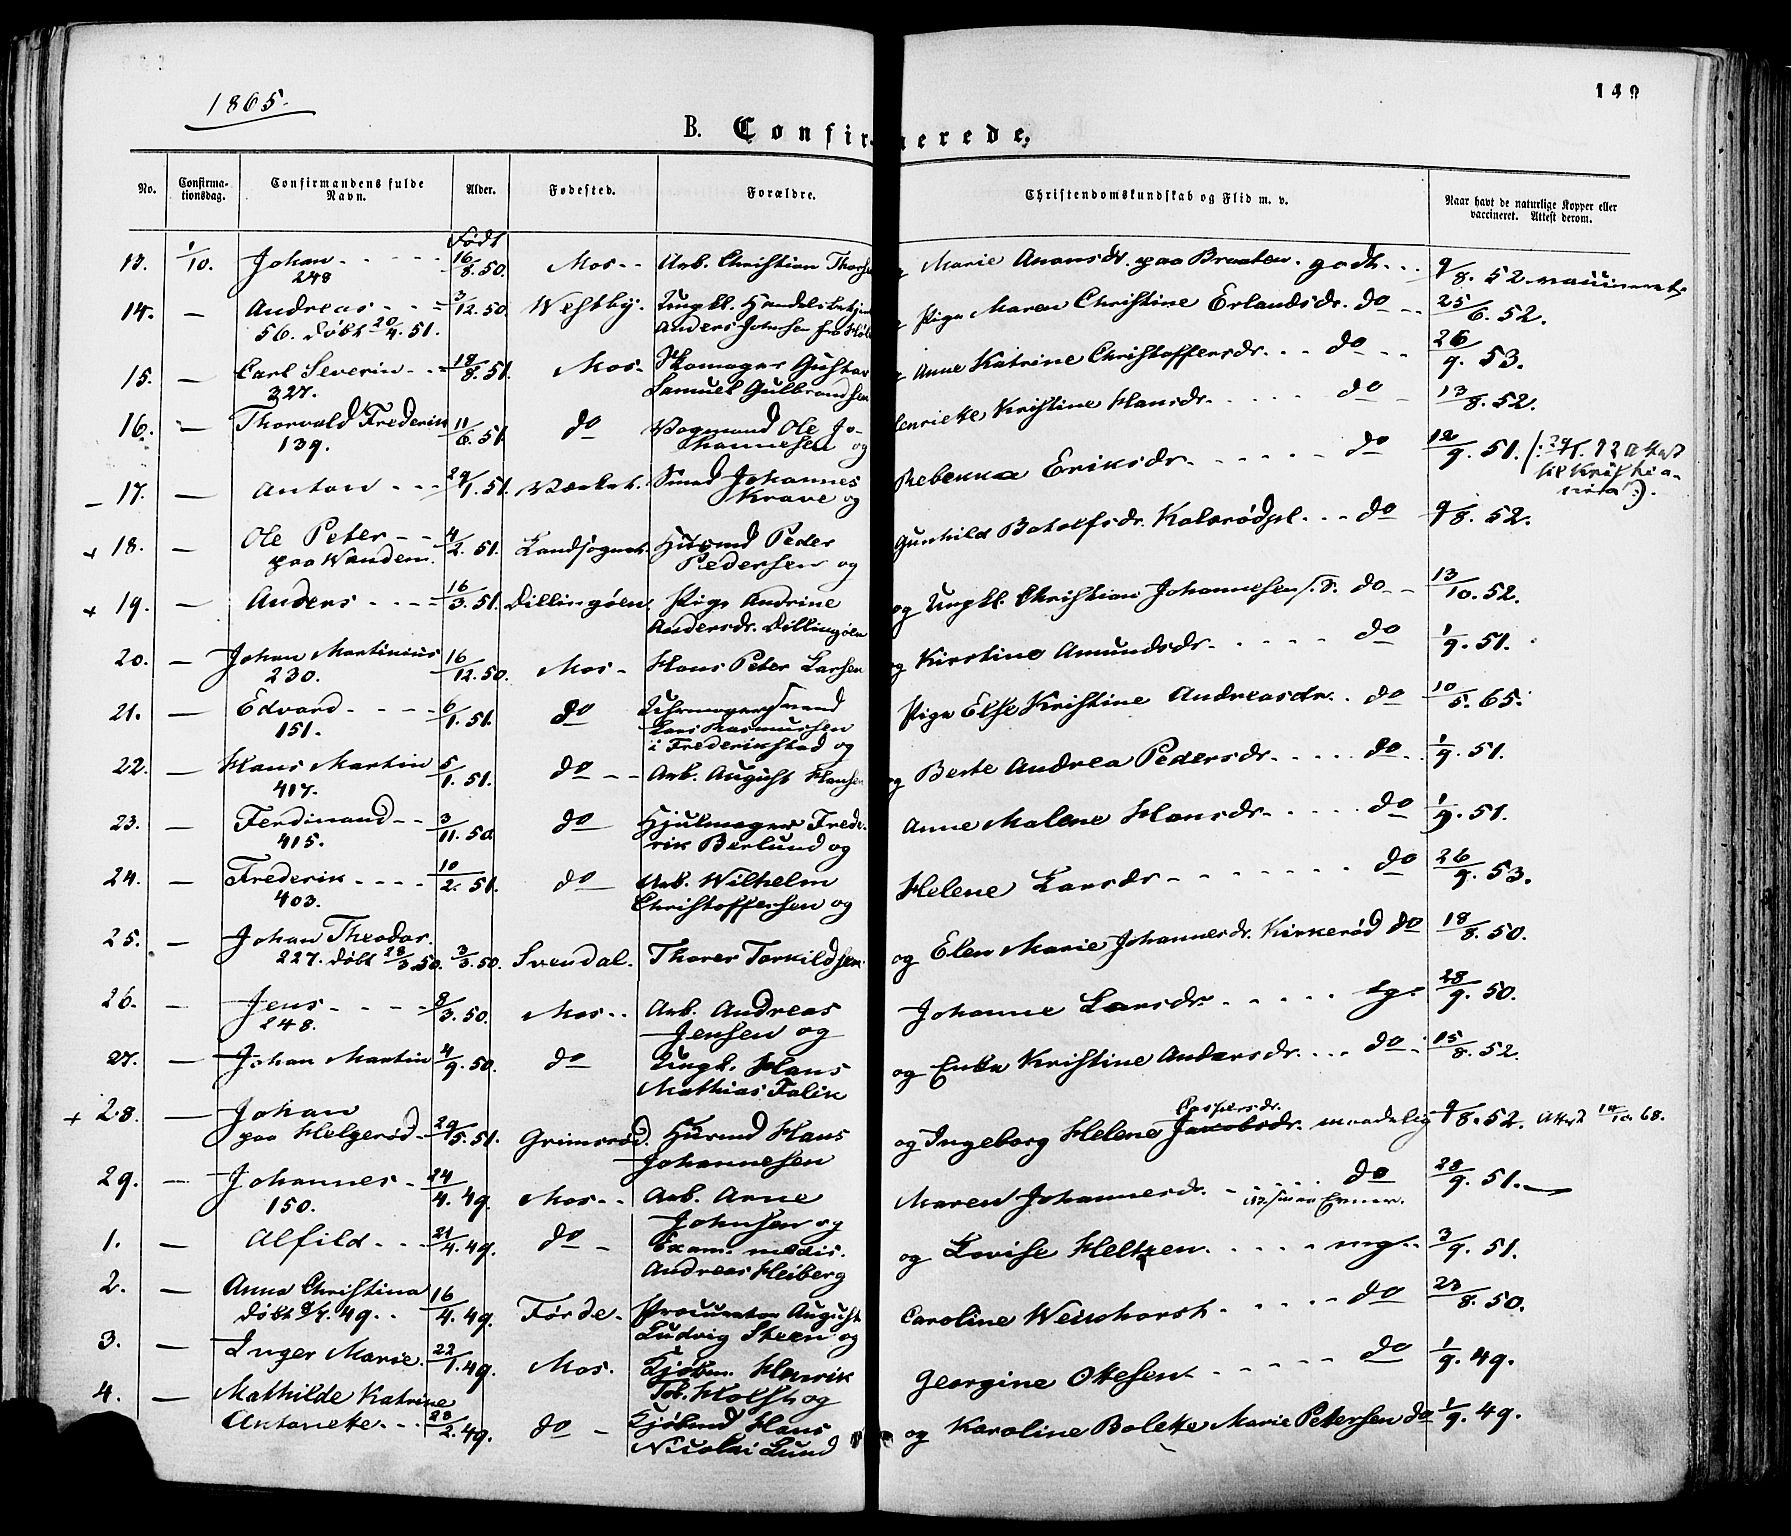 1865.
149
B. Confirmerede,
No. Confirma-tionsdag. Confirmandens fulde Navn. Alder. Fødested. Forældre. Christendomskundskab og Flid m. v. Naar havt de naturlige Kopper eller vaccineret. Attest derom.
Født
13. 1/10. Johan 16/8.50. Mos Arb. Christian Marie Amonsdr. paa Braaten godt 9/8.52. vaccineret
248
14. — Andreas 3/12.50. Westby. Ungkl. Pige Maren Christine Erlandsdr. do 25/6.52.
56. Døbt 20/4.51. Anders Johnsen fra
15. — Carl Severin 18/8.51. Mos. Skomager Gustav Anne Katrine Christoffersdr. do 26/9.53.
327. Samuel Gulbrandsen
16. — Thorvald Frederik 11/6.51. do Vognmand Ole Jo- Kristine Hansdr. do 13/8.52.
139. hannesen og
— 17. — Anton 29/1.51. Smed Johannes Rebekka Eriksdr. do 12/9.51. Attest til Kristiania
Krave og
+ 18. — Ole Peter 4/2.51. Landsognet. Husmd Peder Gunhild do 9/8.52.
paa Wandem. Pedersen og
+ 19. — Anders 16/3.51. Dillingøen. Pige Andrine og Ungkl. Christian Johannesen do 13/10.52.
Andersdr. Dillingøen
20. — Johan Martinius 16/12.50. Mos Hans Peter Larsen og Kirstine Amundsdr. do 1/9.51.
230.
21. — Edvard 6/1.51. do Uhrmagersvend Pige Else Kristine Andreasdr. do 10/5.65.
151. Lars Rasmussen
i Frederikstad og
22. — Hans Martin 5/1.51. do Arb. August Hansen og Berte Andrea Pedersdr. do 1/9.51.
417.
23. — Ferdinand 3/11.50. do Hjulmager Frede- Anne Malene Hansdr. do 1/9.51.
415. rik Berlund og
24. — Frederik 10/2.51. do Arb. Wilhelm Helene Larsdr. do 26/9.53.
403. Christoffersen og
25. — Johan Theodor. 3/3.50. Svendal. Thorer Torkildsen og Elen Marie Johannesdr. Kirkerød do 18/8.50.
227. Døbt 28/3.50.
26. — Jens 8/3.50. Mos Arb. Andreas Johanne Larsdr. tg. 28/9.50.
248. Jensen og
27. — Johan Martin 4/9.50. do Ungk. Hans og Enke Kristine Andersdr. do 15/8.52.
Mathias Falck
+ 28. — Johan 29/5.51. Grimsrød. Husmd Hans og Ingeborg Helene Jacobsdr. maadelig 9/8.52. Attest 14/10.68.
paa Helgerød Johannesen
29. — Johannes 24/4.49. Mos Arb. Arne Maren Johannesdr. do 28/9.51.
150. Johnsen og
1. — Alfild 21/4.49. do Exam. medic. og Lovise Heltzen mg. 3/9.51.
Andreas Heiberg
2. — Anna Christina 16/4.49. Førde. Procurator August Caroline Weinhorst do 23/8.50.
Døbt Ludvig Steen og
3. — Inger Marie. 22/1.49. Mos. Kjøbm. Henrik Georgine Ottesen do 1/9.49.
Tob. Holst og
4. — Mathilde Katrine 28/2.49. do Kjøbmd Hans og Karoline Bolette Marie Petersen do 1/9.49.
Antonette Nicolai Lund